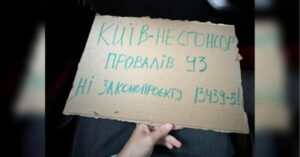 КИЇВ-НЕ СПОНСОР
ПРОВАЛІВ УЗ
НІ ЗАКОНОПРОЄКТУ 13439-3!